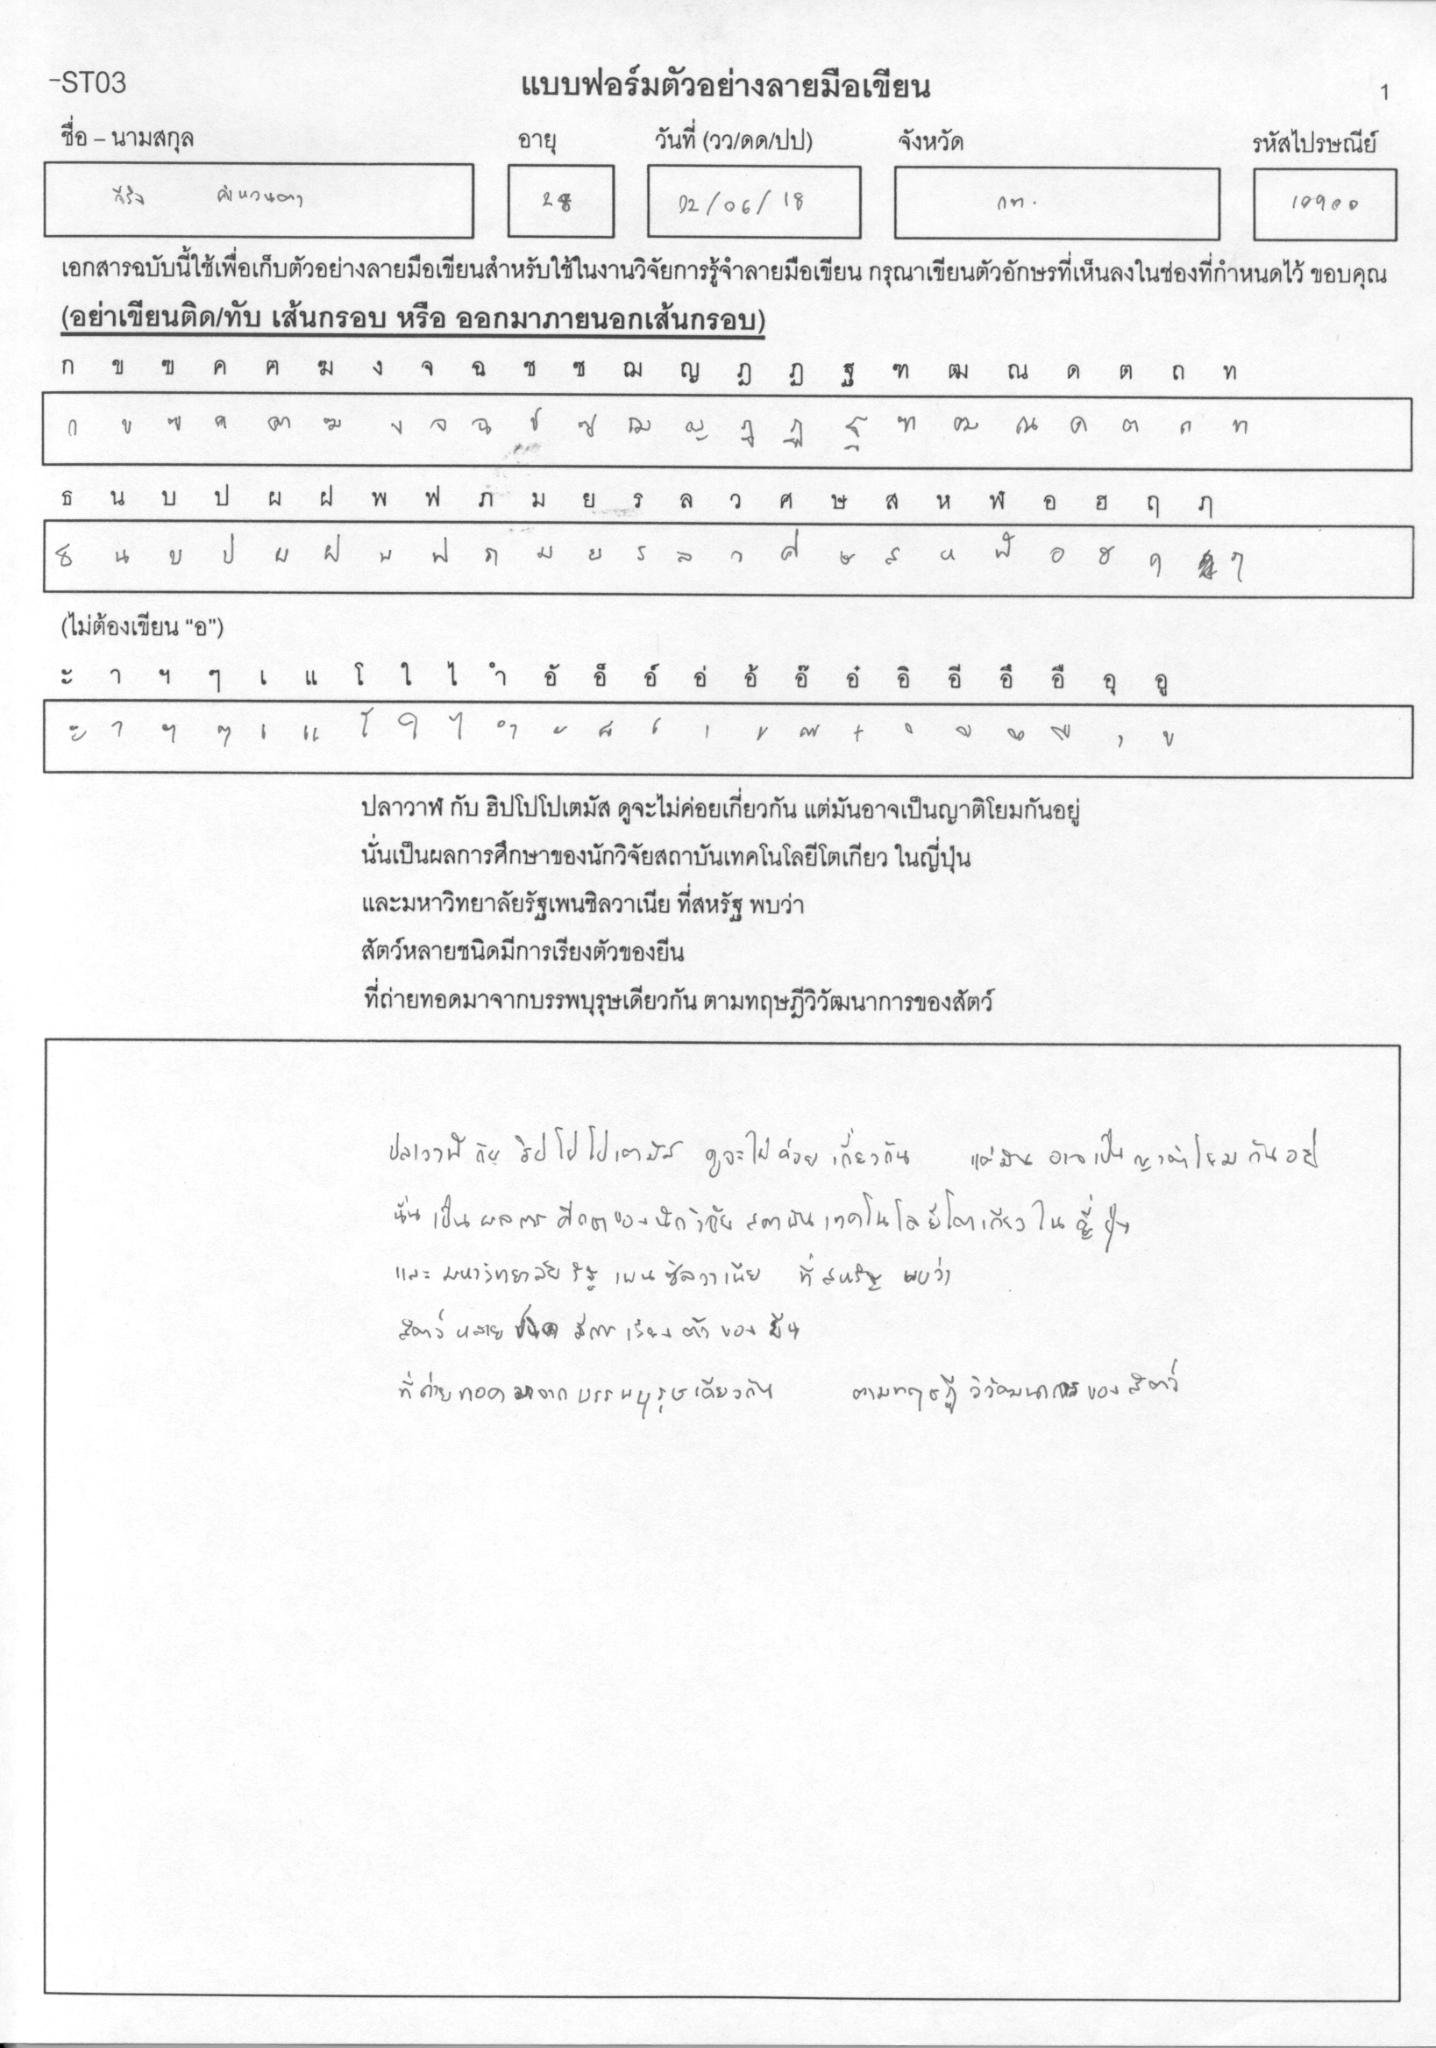 -ST03 แบบฟอร์มตัวอย่างลายมือเขียน 1
ชื่อ – นามสกุล อายุ วันที่ (วว/ดด/ปป) จังหวัด รหัสไปรษณีย์
28 02/06/18 กท. 10900
เอกสารฉบับนี้ใช้เพื่อเก็บตัวอย่างลายมือเขียนสำหรับใช้ในงานวิจัยการรู้จำลายมือเขียน กรุณาเขียนตัวอักษรที่เห็นลงในช่องที่กำหนดไว้ ขอบคุณ
(อย่าเขียนติด/ทับ เส้นกรอบ หรือ ออกมาภายนอกเส้นกรอบ)
ก ข ฃ ค ฅ ฆ ง จ ฉ ช ซ ฌ ญ ฎ ฏ ฐ ฑ ฒ ณ ด ต ถ ท
ก ข ฃ ค ฅ ฆ ง จ ฉ ช ซ ฌ ญ ฎ ฏ ฐ ฑ ฒ ณ ด ต ถ ท
ธ น บ ป ผ ฝ พ ฟ ภ ม ย ร ล ว ศ ษ ส ห ฬ อ ฮ ฤ ฦ
ธ น บ ป ผ ฝ พ ฟ ภ ม ย ร ล ว ศ ษ ส ห ฬ อ ฮ ฤ ฦ
(ไม่ต้องเขียน “อ”)
ะ า ฯ ๆ เ แ โ ใ ไ ำ อั อ็ อ์ อ่ อ้ อ๊ อ๋ อิ อี อึ อื อุ อู
ะ า ฯ ๆ เ แ โ ใ ไ ำ ั ็ ์ ่ ้ ๊ ๋ ิ ี ึ ื ุ ู
ปลาวาฬ กับ ฮิปโปโปเตมัส ดูจะไม่ค่อยเกี่ยวกัน แต่มันอาจเป็นญาติโยมกันอยู่
นั่นเป็นผลการศึกษาของนักวิจัยสถาบันเทคโนโลยีโตเกียว ในญี่ปุ่น
และมหาวิทยาลัยรัฐเพนซิลวาเนีย ที่สหรัฐ พบว่า
สัตว์หลายชนิดมีการเรียงตัวของยีน
ที่ถ่ายทอดมาจากบรรพบุรุษเดียวกัน ตามทฤษฎีวิวัฒนาการของสัตว์
ปลาวาฬ กับ ฮิปโปโปเตมัส ดูจะไม่ค่อยเกี่ยวกัน แต่มันอาจเป็นญาติโยมกันอยู่
นั่นเป็นผลการศึกษาของนักวิจัยสถาบันเทคโนโลยีโตเกียว ในญี่ปุ่น
และมหาวิทยาลัยรัฐเพนซิลวาเนีย ที่สหรัฐ พบว่า
สัตว์หลายชนิดมีการเรียงตัวของยีน
ที่ถ่ายทอดมาจากบรรพบุรุษเดียวกัน ตามทฤษฎีวิวัฒนาการของสัตว์